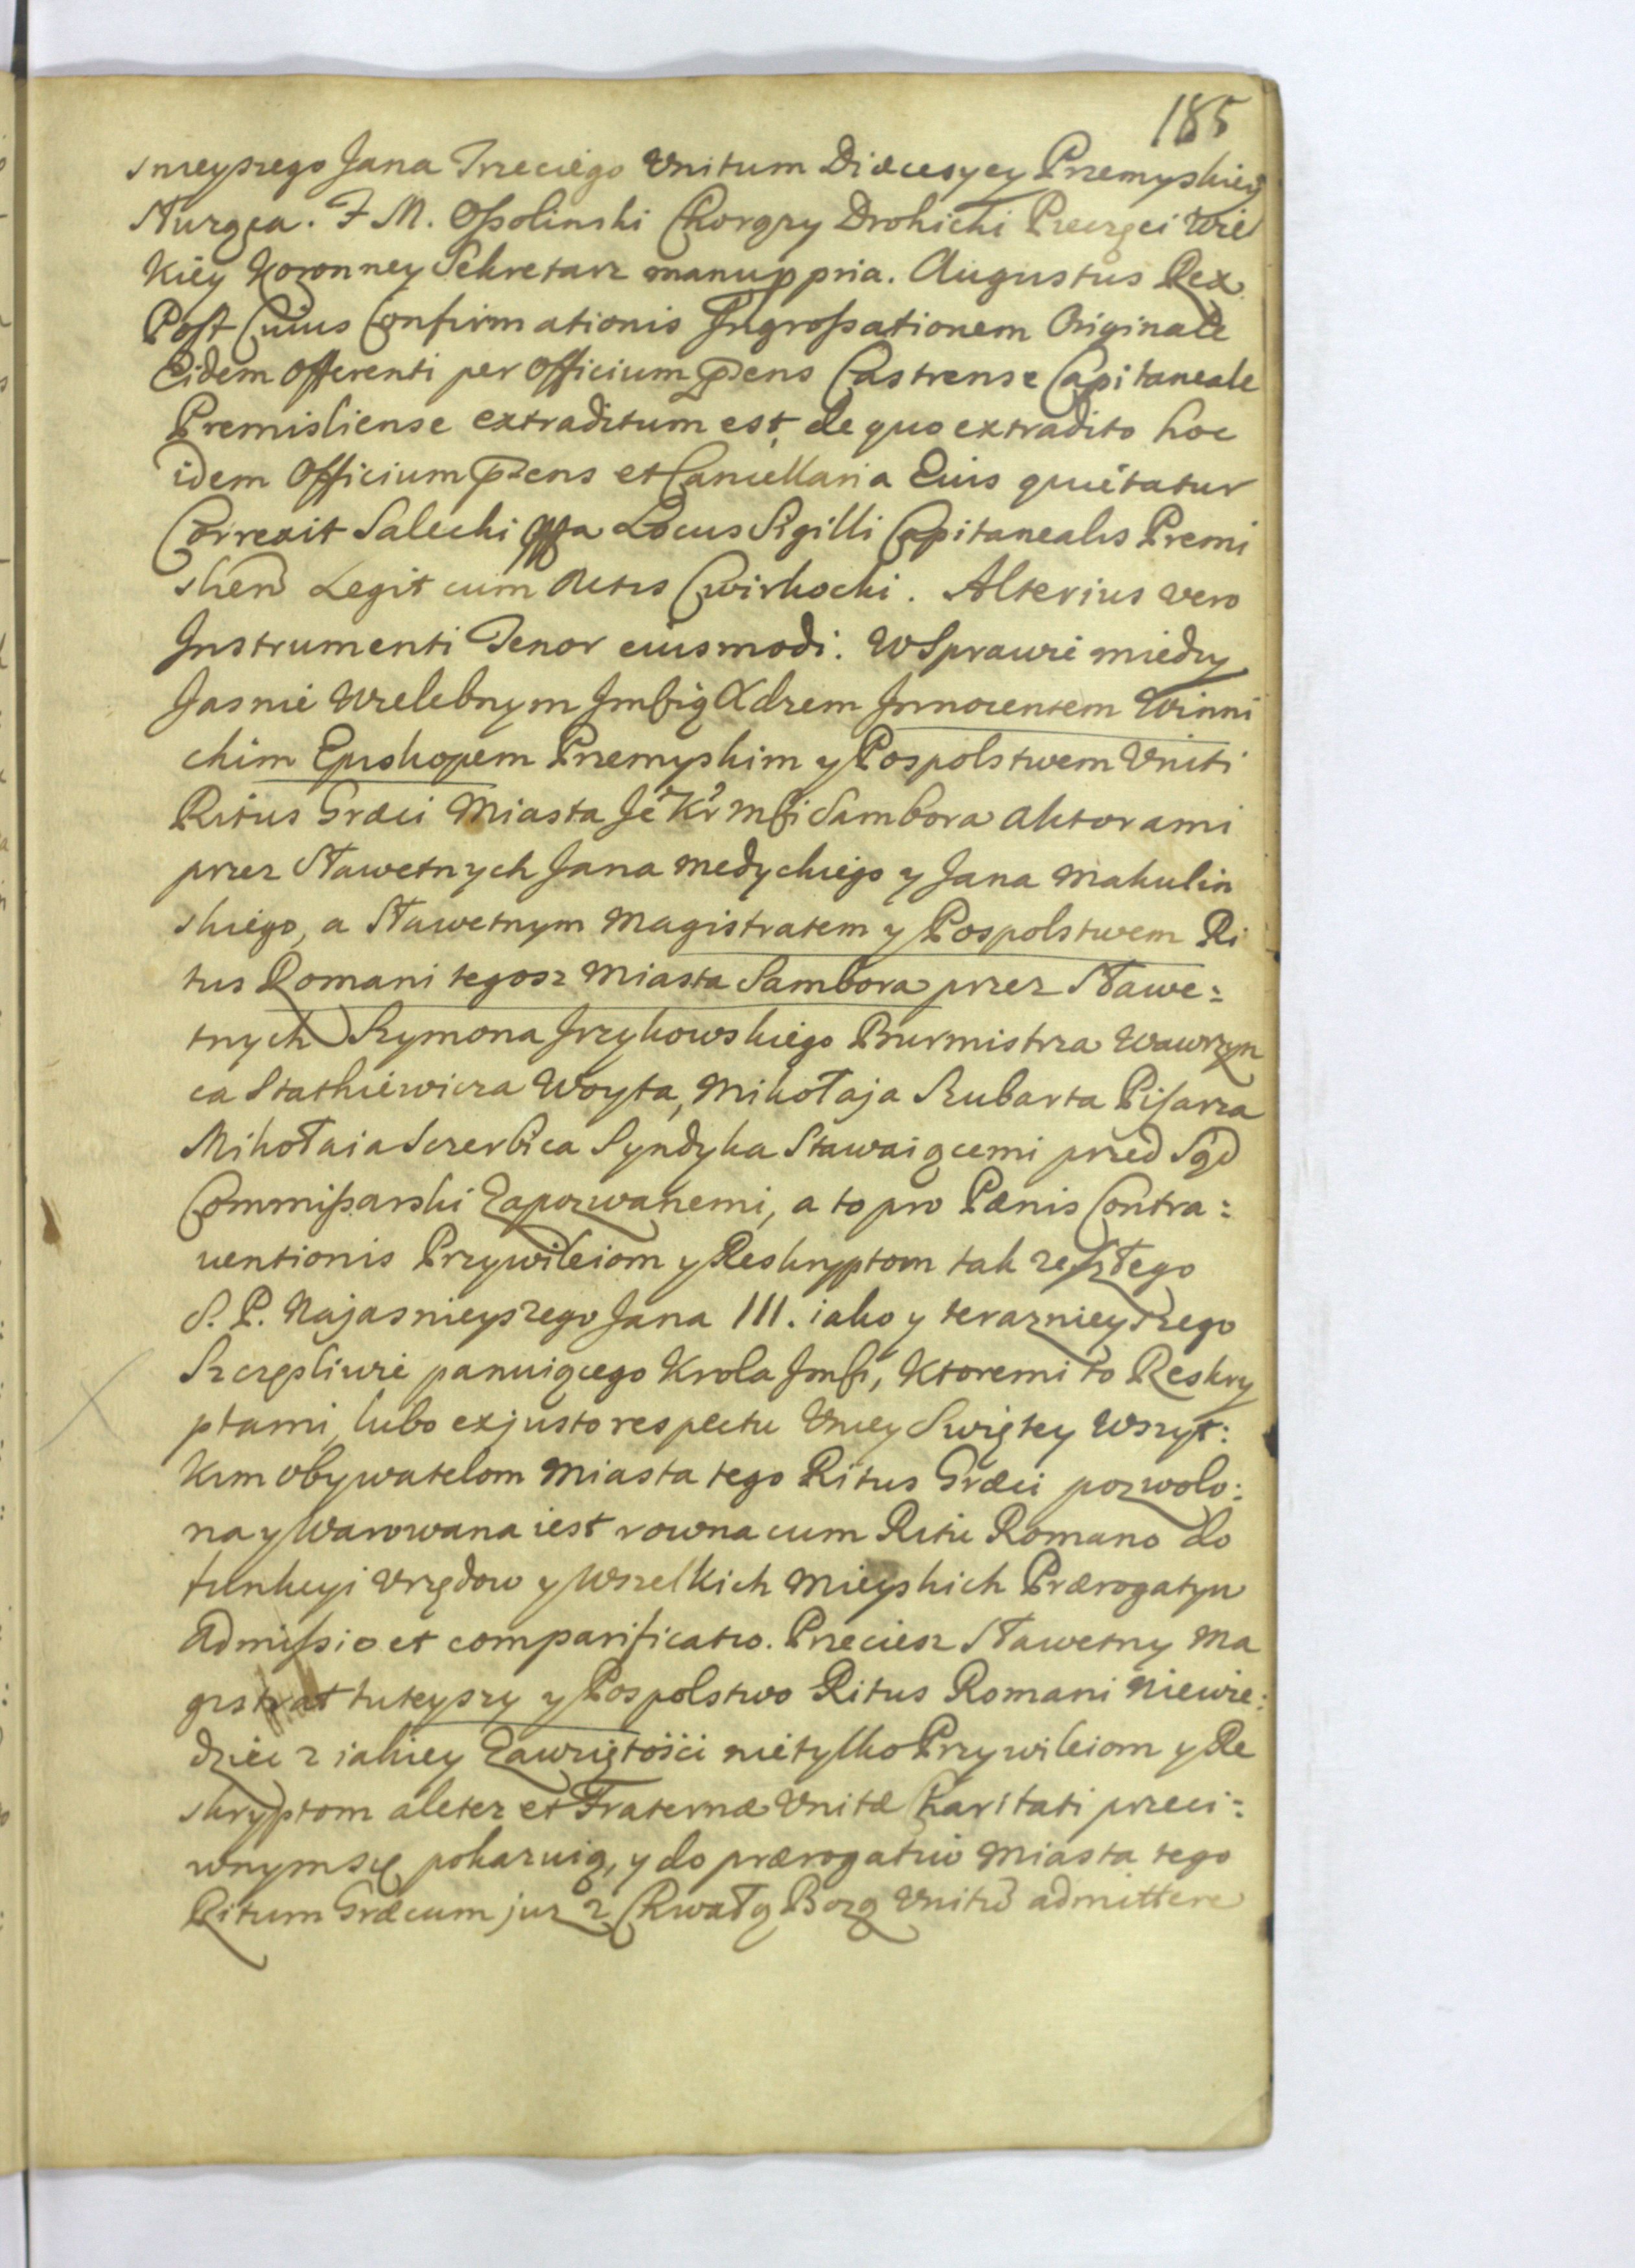 185
snieyszego Jana Trzeciego Unitum Diæcesyey Przemyskiey
Sturgea. F M. Ossolinski Chorąży Drohicki Pieczęci Wiel
kiey Koronney Sekretarz manuppria. Augustus Rex
Post Cuius Confirmationis Ingrossationem Originale
Eidem Offerenti per Officium pñens Castrense Capitaneale
Premisliense extraditum est, de quo extradito hoc
idem Officium pñens et Cancellaria Eius quietatur
Correxit Salecki mppa Locus Sigilli Capitanealis Premi
slien Legit cum Actis Cwirkocki. Alterius vero
Instrumenti Tenor eiusmodi: W Sprawie miedzy
Jasnie Wielebnym Jmścią Xdzem Innocentem Winni
ckim Episkopem Przemyskim y Pospolstwem Uniti
Ritus Græci Miasta Je Kr Mści Sambora aktorami
przez Sławetnych Jana Medyckiego y Jana Makulin
skiego, a Sławetnym Magistratem y Pospolstwem Ri
tus Romani tegosz Miasta Sambora przez Sławe:
tnych Szymona Jrzykowskiego Burmistrza Wawrzyn
ca Stathiewicza Woyta, Mikołaja Szubarta Pisarza
Mikołaia Szczerbica Syndyka Stawaiącemi przed Sąd
Commissarski Zapozwanemi, a to pro Pænis Contra:
ventionis Przywileiom y Reskryptom tak zeszłego
S. P. Najasnieyszego Jana III. iako y teraznieyszego
Szczęsliwie panuiącego Krola Jmści, Ktoremi to Reskry
ptami, lubo ex justo respectu Uniey Swiętey Wszyt:
kim obywatelom Miasta tego Ritus Græci pozwolo:
na y Warowana iest rowna cum Ritu Romano do
funkcyi Urzędow y Wszelkich Mieyskich Prærogatyw
Admissio et comparificatio. Przeciesz Sławetny Ma
gistrat tuteyszy y Pospolstwo Ritus Romani Niewie:
dziec z iakiey Zawziętości nietylko Przywileiom y Re
skryptom ale tez et Fraternæ Unitæ Charitati przeci:
wnym się pokazuią, y do prærogatiw Miasta tego
Ritum Græcum juz z Chwałą Bozą Unitū admittere